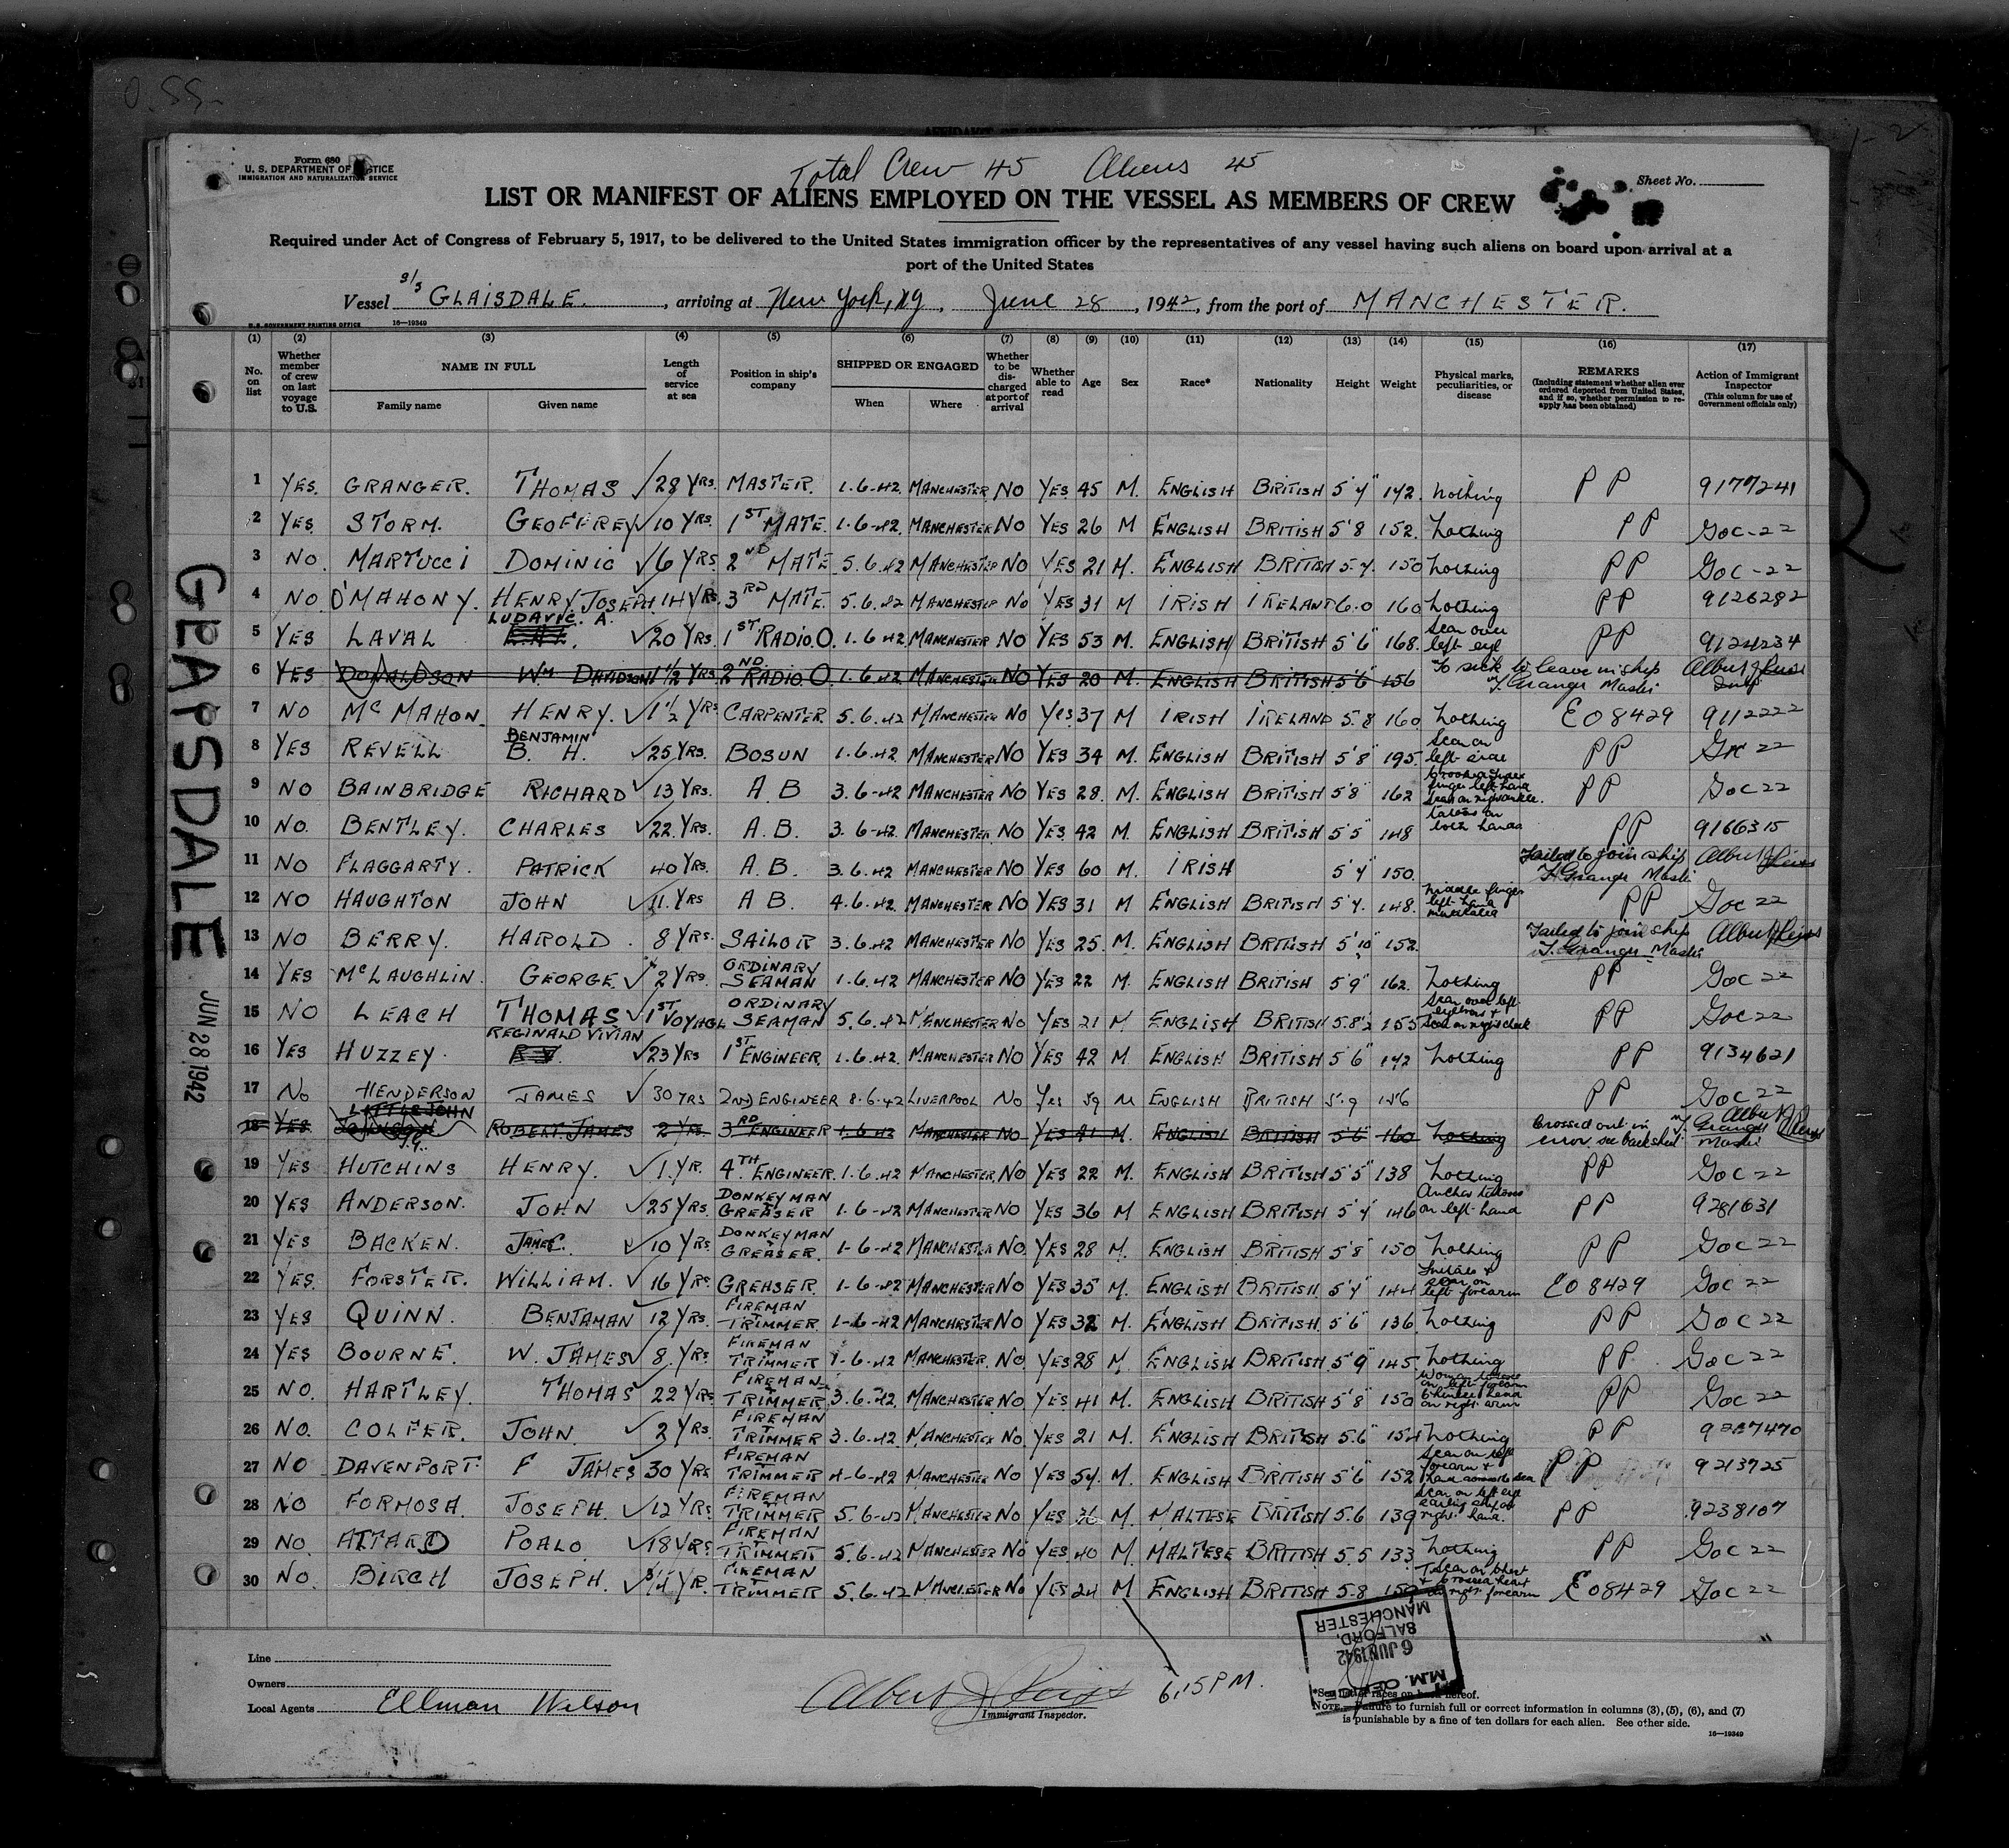 O.SS.
Form 680
U. S. DEPARTMENT OF JUSTICE
IMMIGRATION AND NATURALIZATION SERVICE
Total Crew 45 Aliens 45
Sheet No.
LIST OR MANIFEST OF ALIENS EMPLOYED ON THE VESSEL AS MEMBERS OF CREW
Required under Act of Congress of February 5, 1917, to be delivered to the United States immigration officer by the representatives of any vessel having such aliens on board upon arrival at a
port of the United States
Vessel S/S GLAISDALE. , arriving at New York, NY , June 28 , 1942 , from the port of MANCHESTER.
U.S. GOVERNMENT PRINTING OFFICE 16—19349
(1) (2) (3) (4) (5) (6) (7) (8) (9) (10) (11) (12) (13) (14) (15) (16) (17)
No. on list
Whether member of crew on last voyage to U.S.
NAME IN FULL
Family name
Given name
Length of service at sea
Position in ship's company
SHIPPED OR ENGAGED
When
Where
Whether to be discharged at port of arrival
Whether able to read
Age
Sex
Race*
Nationality
Height
Weight
Physical marks, peculiarities, or disease
REMARKS
(Including statement whether alien ever ordered deported from United States, and if so, whether permission to reapply has been obtained)
Action of Immigrant Inspector
(This column for use of Government officials only)
1 YES. GRANGER. THOMAS ✓ 28 YRS. MASTER. 1.6.42. MANCHESTER NO YES 45 M. ENGLISH BRITISH 5'4" 142. nothing PP 9177241
2 YES STORM. GEOFFREY ✓ 10 YRS. 1ST MATE. 1.6.42. MANCHESTER NO YES 26 M ENGLISH BRITISH 5'8 152. Nothing PP Goc-22
3 NO. MARTUCCI DOMINIC ✓ 6 YRS 2ND MATE 5.6.42 MANCHESTER NO YES 21 M. ENGLISH BRITISH 5.7. 150 Nothing PP Goc-22
4 NO O'MAHONY. HENRY JOSEPH. 14 YRS. 3RD MATE. 5.6.42 MANCHESTER NO YES 31 M IRISH IRELAND 6.0 160 Nothing PP 9126282
5 YES LAVAL LUDAVIC. A. ✓ 20 YRS. 1ST RADIO O. 1.6.42. MANCHESTER NO YES 53 M. ENGLISH BRITISH 5'6" 168. Scar over left eye PP 9124234
6 YES DONALDSON WM DAVIDSON 1½ YRS. 2ND RADIO O. 1.6.42. MANCHESTER NO YES 20 M. ENGLISH BRITISH 5'6" 156 To sick to leave in ship T. Granger Master
7 NO MCMAHON. HENRY. ✓ 1½ YRS CARPENTER. 5.6.42 MANCHESTER NO YES 37 M IRISH IRELAND 5.8 160. Nothing E08429 9112222
8 YES REVELL BENJAMIN B. H. ✓ 25 YRS. BOSUN 1.6.42. MANCHESTER NO YES 34 M. ENGLISH BRITISH 5'8" 195. PP Goc 22
9 NO BAINBRIDGE RICHARD ✓ 13 YRS. A B 3.6-42 MANCHESTER NO YES 28. M. ENGLISH BRITISH 5'8" 162 PP Goc 22
10 NO. BENTLEY. CHARLES ✓ 22. YRS. A. B. 3.6-42. MANCHESTER NO YES 42 M. ENGLISH BRITISH 5'5" 148 tatoos on both hands PP 9166315
11 NO FLAGGARTY. PATRICK 40 YRS. A. B. 3.6.42 MANCHESTER NO YES 60 M. IRISH 5'4" 150. Failed to join ship T. Granger Master
12 NO HAUGHTON JOHN ✓ 11. YRS A B. 4.6.42. MANCHESTER NO YES 31 M ENGLISH BRITISH 5'7. 148. middle finger left hand PP Goc 22
13 NO BERRY. HAROLD. 8 YRS. SAILOR 3.6.42 MANCHESTER NO YES 25. M. ENGLISH BRITISH 5'10" 152. Failed to join ship T. Granger Master
14 YES MCLAUGHLIN. GEORGE ✓ 2 YRS. ORDINARY SEAMAN 1.6.42 MANCHESTER NO YES 22 M. ENGLISH BRITISH 5'9" 162. Nothing PP Goc 22
15 NO LEACH THOMAS ✓ 1ST VOYAGE ORDINARY SEAMAN 5.6.42 MANCHESTER NO YES 21 M ENGLISH BRITISH 5.8½ 155 Scar over left eyebrow + scar on right cheek PP Goc 22
16 YES HUZZEY. REGINALD VIVIAN ✓ 23 YRS 1ST ENGINEER. 1.6.42. MANCHESTER NO YES 42 M. ENGLISH BRITISH 5'6" 142 Nothing PP 9134621
17 NO HENDERSON JAMES ✓ 30 YRS 2ND ENGINEER 8.6.42 LIVERPOOL NO YES 59 M ENGLISH BRITISH 5.9 156 PP Goc 22
18 YES LITTLEJOHN ROBERT JAMES 2 YRS. 3RD ENGINEER 1.6.42 MANCHESTER NO YES 21 M. ENGLISH BRITISH 5'6" 160 Nothing Crossed out in error see back sheet T. Granger Master
19 YES HUTCHINS HENRY. ✓ 1. YR. 4TH ENGINEER. 1.6.42 MANCHESTER NO YES 22 M. ENGLISH BRITISH 5'5" 138 Nothing PP Goc 22
20 YES ANDERSON. JOHN ✓ 25 YRS. DONKEYMAN GREASER 1.6-42 MANCHESTER NO YES 36 M ENGLISH BRITISH 5'4" 146 Anchor tatoos on left hand PP 9281631
21 YES BACKEN. JAMES. ✓ 10 YRS. DONKEYMAN GREASER. 1-6-42 MANCHESTER NO. YES 28 M. ENGLISH BRITISH 5'8" 150 Nothing PP Goc 22
22 YES. FORSTER. WILLIAM. ✓ 16 YRS. GREASER. 1-6-42 MANCHESTER NO YES 35 M. ENGLISH BRITISH 5'4" 144 Initials + scar on left forearm E08429 Goc 22
23 YES QUINN. BENJAMAN 12 YRS. FIREMAN + TRIMMER. 1-6-42 MANCHESTER NO YES 32 M. ENGLISH BRITISH. 5'6" 136. Nothing PP Goc 22
24 YES BOURNE. W. JAMES ✓ 8. YRS. FIREMAN + TRIMMER 1-6-42 MANCHESTER. NO. YES 28 M. ENGLISH BRITISH. 5'9" 145. Nothing PP Goc 22
25 NO. HARTLEY. THOMAS 22 YRS FIREMAN + TRIMMER 3.6.42. MANCHESTER NO YES 41 M. ENGLISH BRITISH 5'8" 150 PP Goc 22
26 NO. COLFER. JOHN. ✓ 2 YRS. FIREMAN + TRIMMER 3.6.42. MANCHESTER NO. YES 21 M. ENGLISH BRITISH 5.6" 154 Nothing PP
27 NO DAVENPORT F JAMES 30 YRS FIREMAN + TRIMMER 4-6-42 MANCHESTER NO YES 54. M. ENGLISH BRITISH 5'6" 152 PP 9213725
28 NO FORMOSA. JOSEPH. ✓ 12 YRS. FIREMAN + TRIMMER 5.6-42 MANCHESTER NO YES 36 M. MALTESE BRITISH 5.6 139 PP 9238107
29 NO. ATTARD POALO ✓ 18 YRS. FIREMAN + TRIMMER 5.6.42 MANCHESTER NO YES 40 M. MALTESE BRITISH 5.5 133 Nothing PP Goc 22
30 NO. BIRCH JOSEPH. FIREMAN + TRIMMER 5.6.42 MANCHESTER NO YES 24 M ENGLISH BRITISH 5.8 E08429 Goc 22
GLAISDALE
JUN 28 1942
Line
Owners
Local Agents Ellman Wilson
Albert J Reiss
Immigrant Inspector.
6:15 PM.
6 JUN 1942
SALFORD,
MANCHESTER
*See list of races on back hereof.
NOTE.—Failure to furnish full or correct information in columns (3), (5), (6), and (7)
is punishable by a fine of ten dollars for each alien. See other side.
16—19349